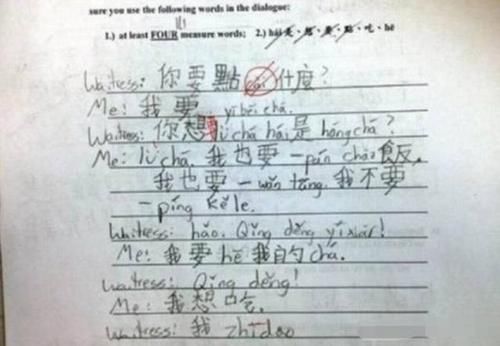 sure you use the following words in the dialogue:
1.) at least FOUR measure words; 2.) hái 是、想、要、點、吃、hē
Waitress: 你要點 什麼?
Me: 我要 yī bēi chá.
Waitress: 你想 lǜ chá hái 是 hóng chá?
Me: lǜ chá. 我也要一 pán chǎo 飯.
我也要一 wǎn tāng. 我不要
一 píng kělè.
Waitress: hǎo. Qǐng děng yíxiàr!
Me: 我要 hē 我的 chá.
Waitress: Qǐng děng!
Me: 我想吃.
Waitress: 我 zhīdao